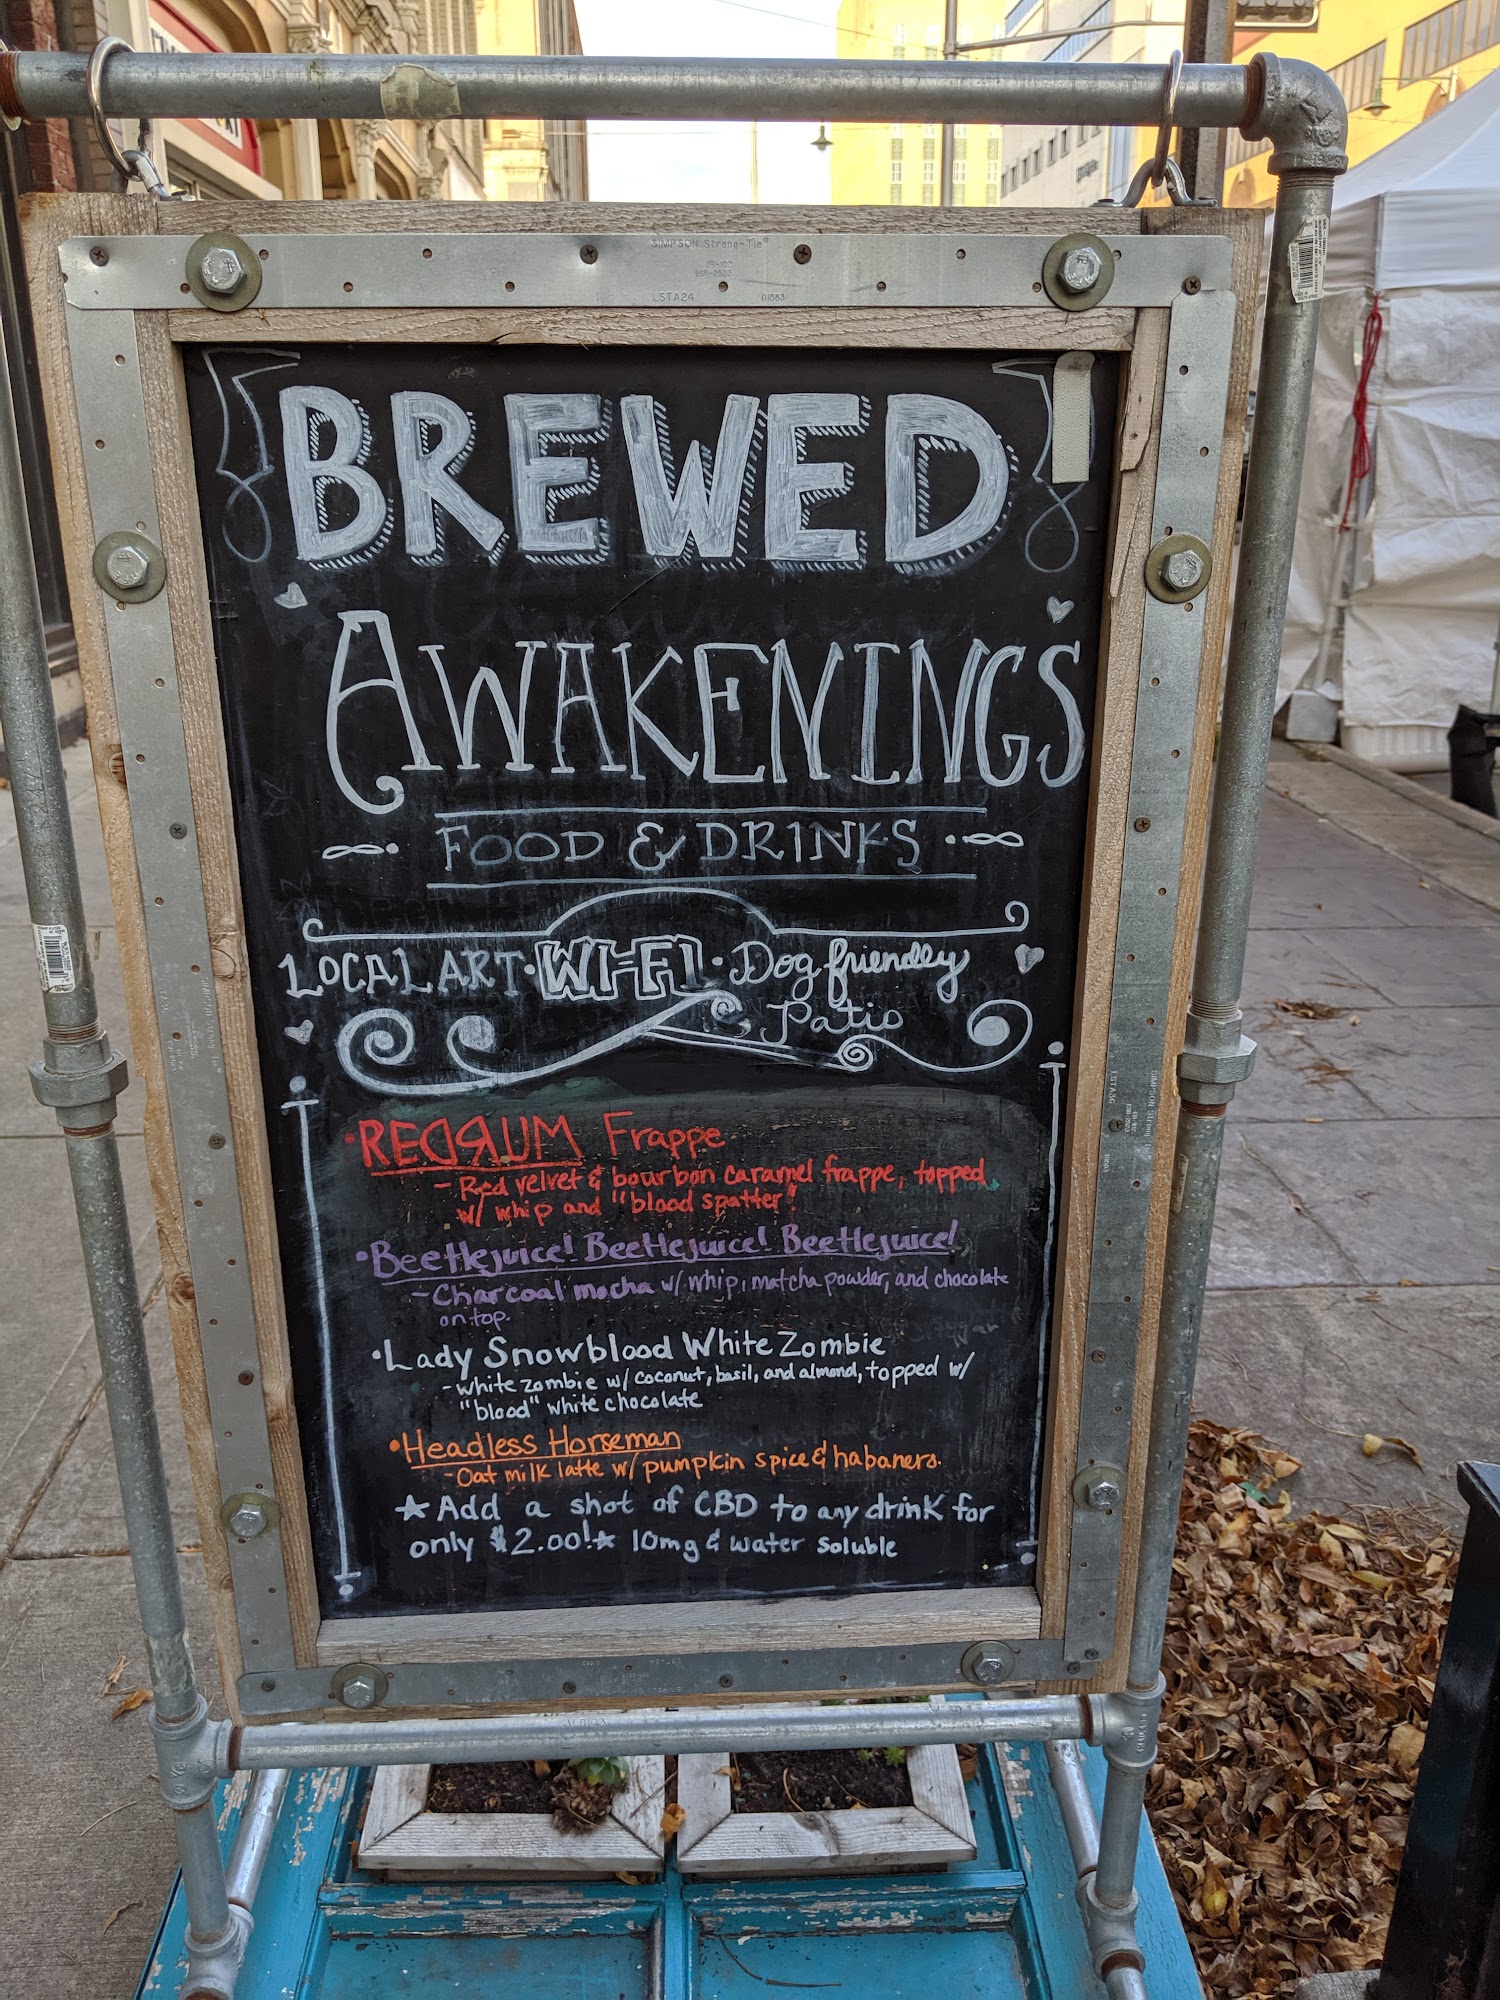 SIMPSON Strong-Tie®
LSTA24
BREWED
AWAKENINGS
FOOD & DRINKS
LOCAL ART · WI-FI · Dog friendly
Patio
• REDRUM Frappe
- Red velvet & bourbon caramel frappe, topped
w/ whip and "blood spatter"
• Beetlejuice! Beetlejuice! Beetlejuice!
- Charcoal mocha w/ whip, matcha powder, and chocolate
on top.
• Lady Snowblood White Zombie
- white zombie w/ coconut, basil, and almond, topped w/
"blood" white chocolate
• Headless Horseman
- Oat milk latte w/ pumpkin spice & habanero.
★ Add a shot of CBD to any drink for
only $2.00! ★ 10mg & water soluble